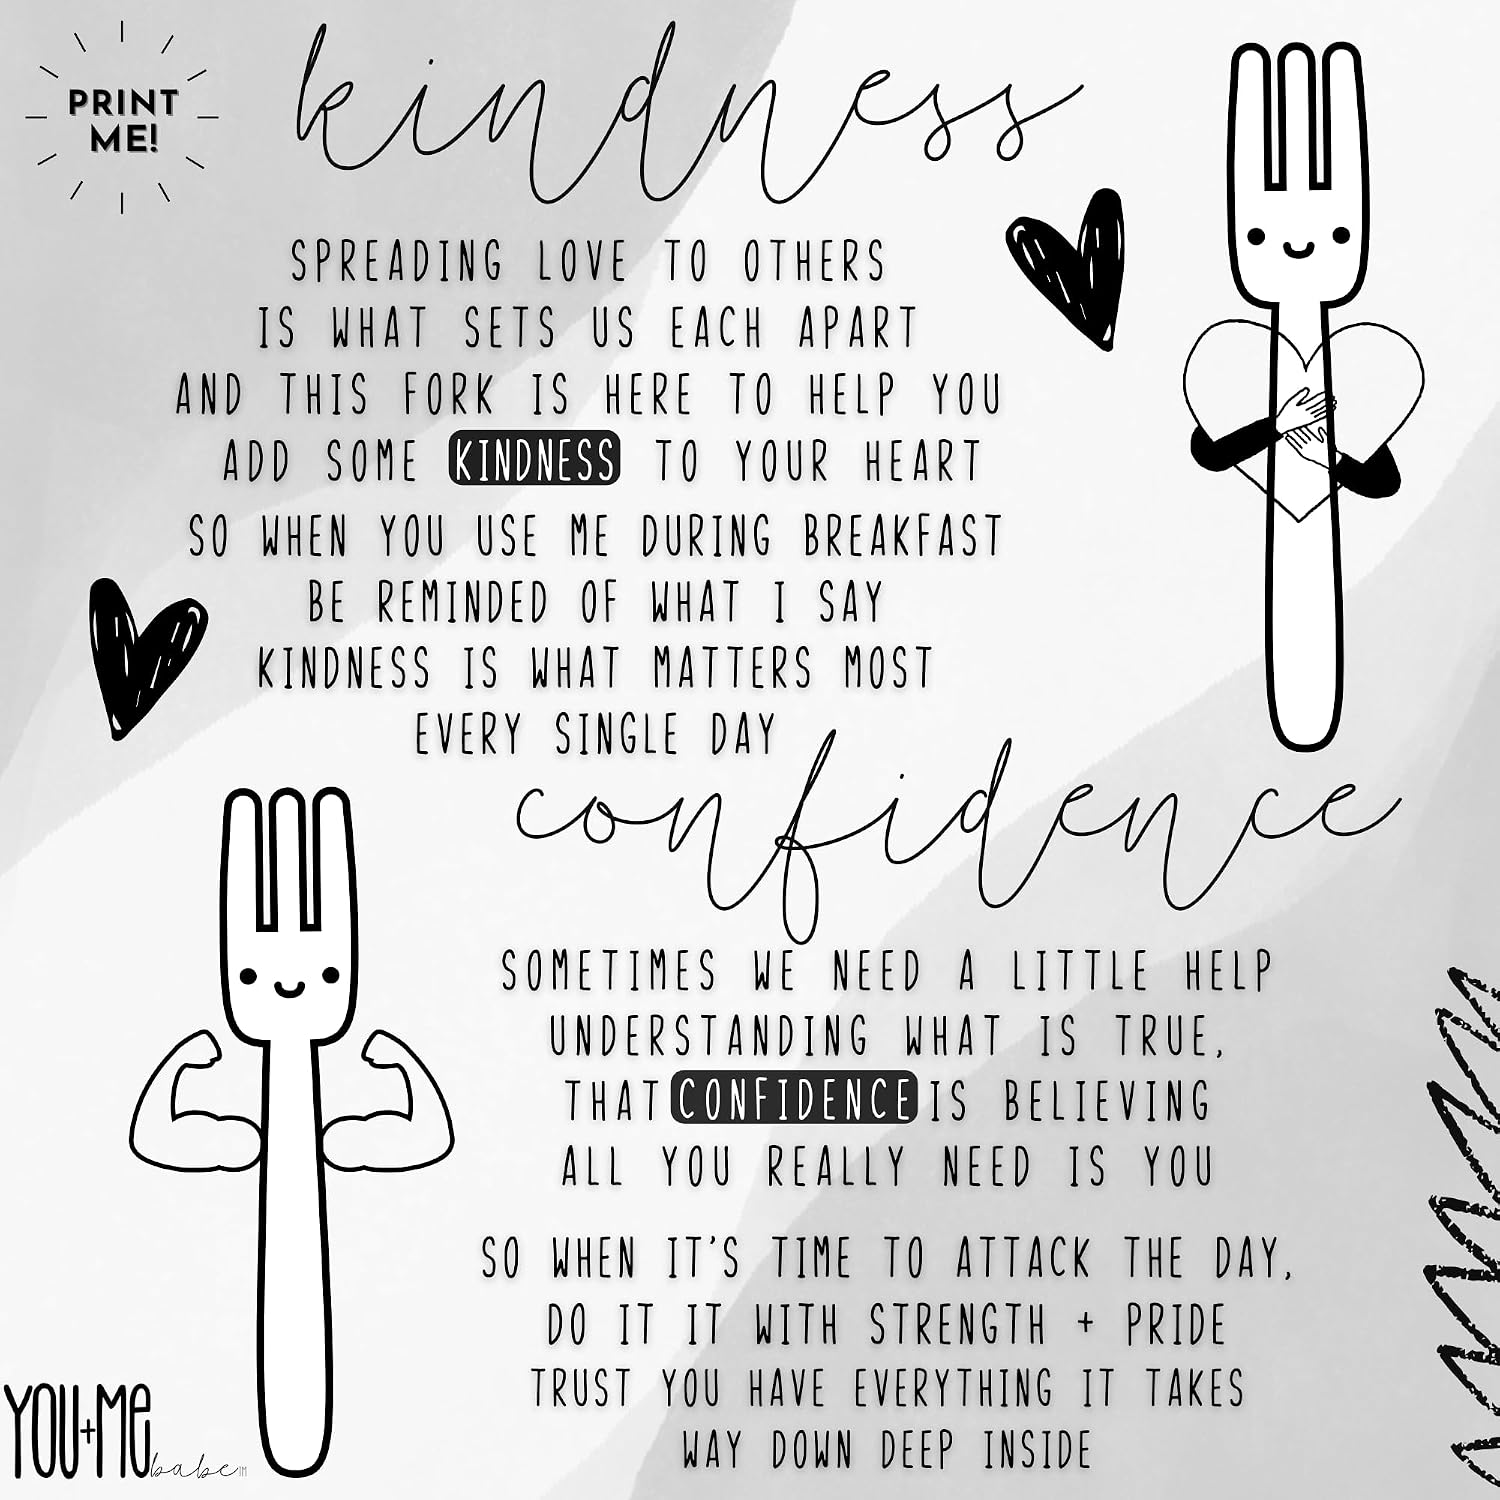 PRINT
ME!
kindness
SPREADING LOVE TO OTHERS
IS WHAT SETS US EACH APART
AND THIS FORK IS HERE TO HELP YOU
ADD SOME KINDNESS TO YOUR HEART
SO WHEN YOU USE ME DURING BREAKFAST
BE REMINDED OF WHAT I SAY
KINDNESS IS WHAT MATTERS MOST
EVERY SINGLE DAY
confidence
SOMETIMES WE NEED A LITTLE HELP
UNDERSTANDING WHAT IS TRUE,
THAT CONFIDENCE IS BELIEVING
ALL YOU REALLY NEED IS YOU
SO WHEN IT'S TIME TO ATTACK THE DAY,
DO IT IT WITH STRENGTH + PRIDE
TRUST YOU HAVE EVERYTHING IT TAKES
WAY DOWN DEEP INSIDE
YOU+Me babe TM